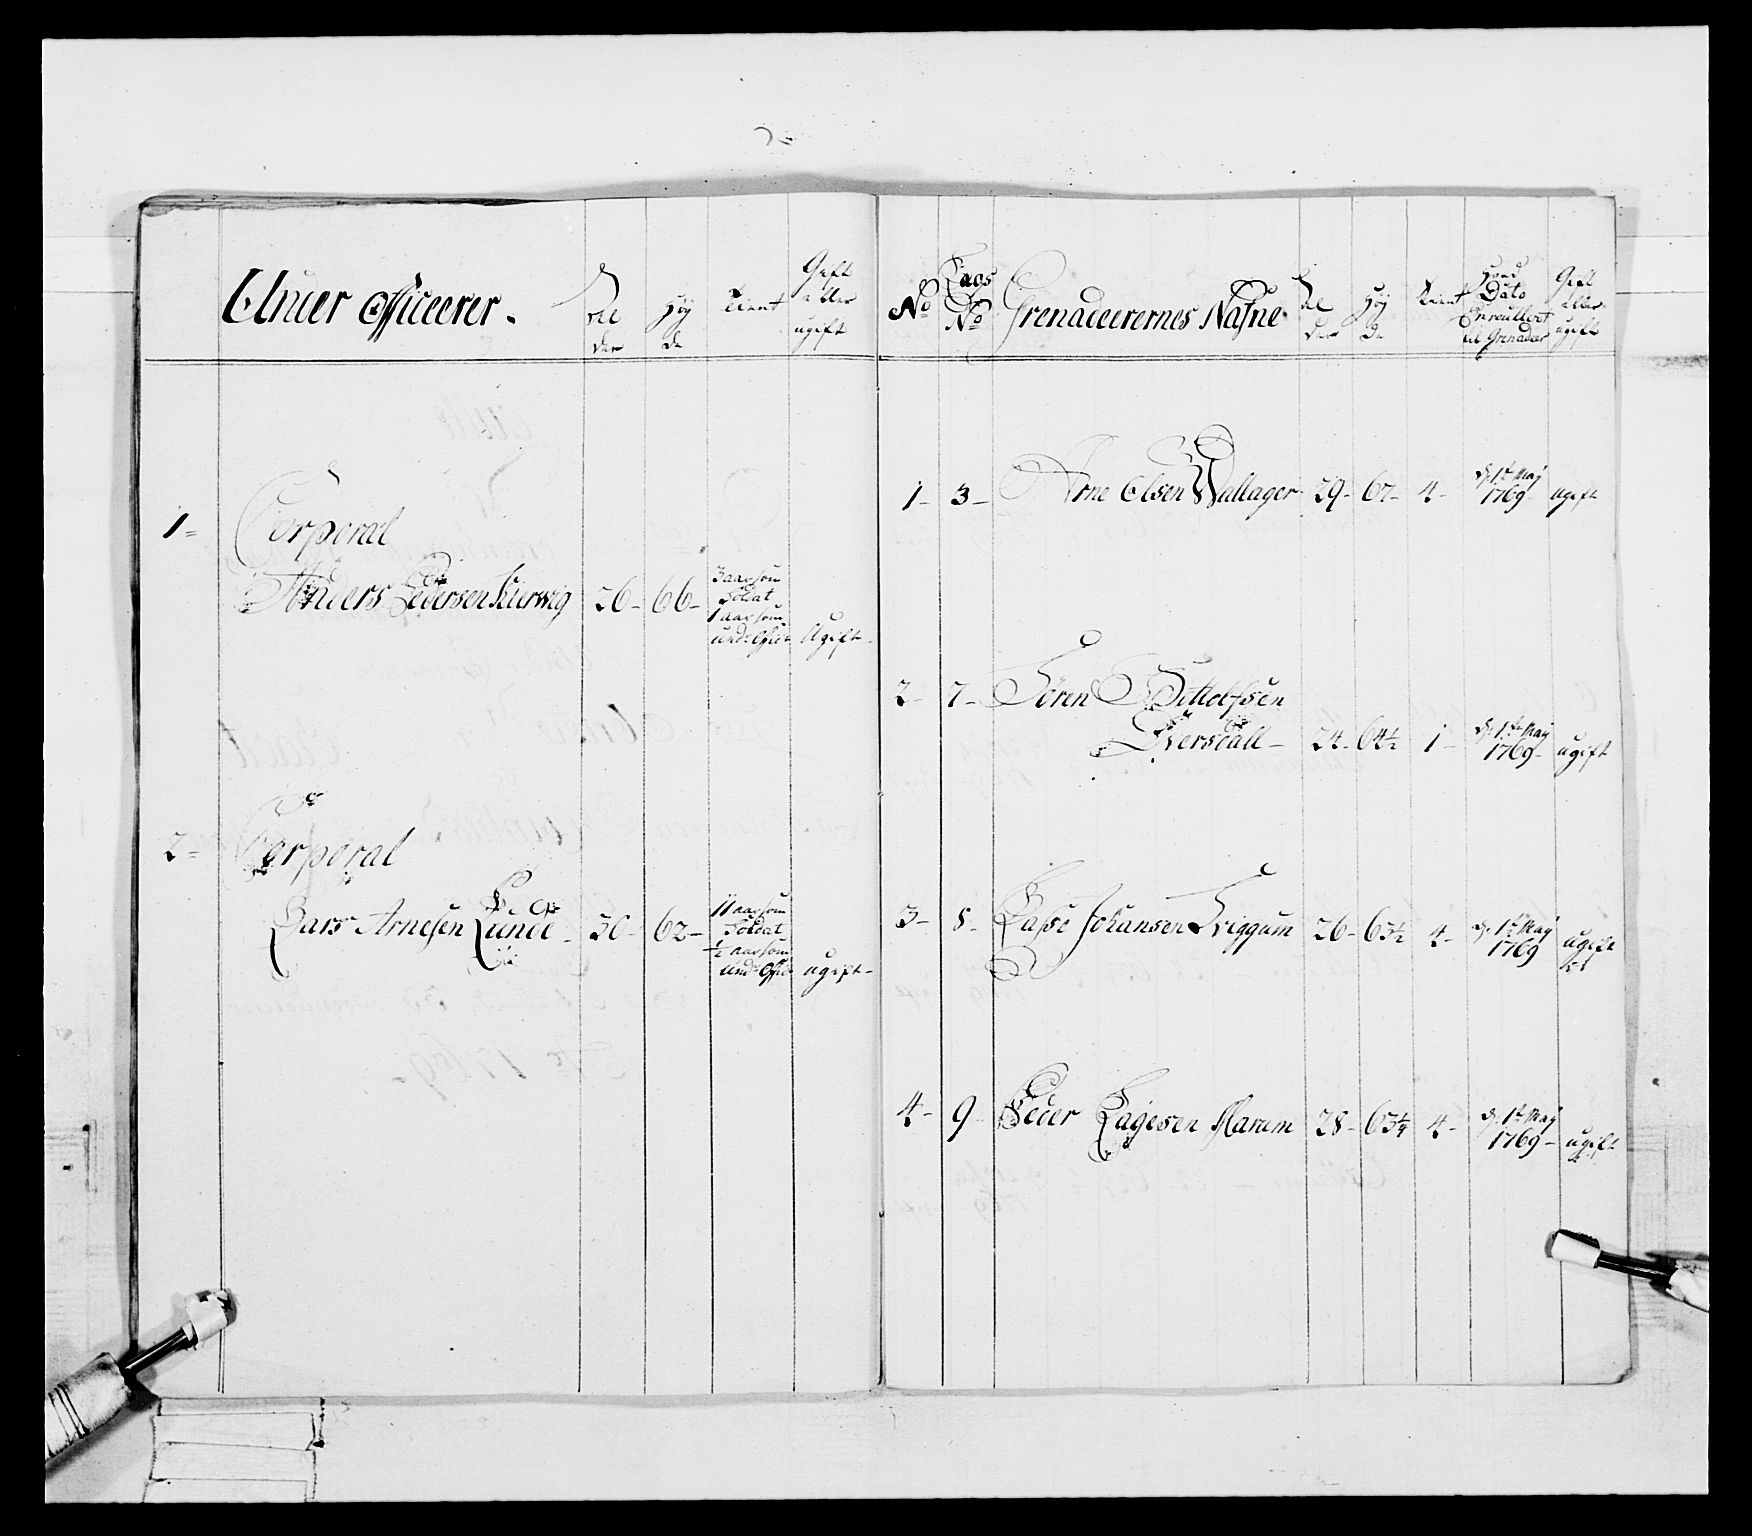 Under Officeerer.
Al
der
Höy
de
Tient
Gift
eller
ugift
1=
Corporal
Anders Pedersen Kierwig 26- 66-
3 aar som
Soldat
1 aar som
und: Offic: Ugift-
2=
Corporal
Lars Arnesen Lunde - 30- 62-
11 aar som
Soldat
½ aar som
Und: Offic: ugift-
No
Laos
No
Grenadeerernes Nafne.
Al
der
Höy
de
Tient
Hvad
Dato
Enroullert
til Grenadeer
Gift
eller
ugift
1- 3- Arne Olsen Wallager 29- 67- 4- d: 1te May
1769- ugift
2- 7- Sören Dittlefsen
Qversdall- 24- 64½ 1- d: 1te May
1769- ugift
3- 8- Lasse Johansen Triggum 26- 63½ 4- d: 1te May
1769 ugift
4- 9 Peder Lagesen Marum 28- 63¼ 4- d: 1te May
1769- ugift